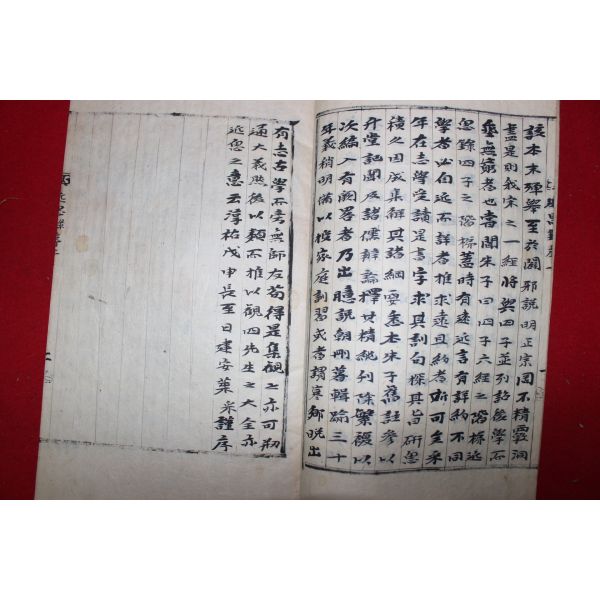 該本末殫舉至於闢邪說明正宗罔不精覈洞
盡是則我宋之一經將與四子並列詔後學而
垂無窮者也嘗聞朱子曰四子六經之階梯近
思錄四子之階梯蓋時有遠近言有詳約不同
學者必自近而詳者推求遠且約者斯可矣采
年在志學受讀是書字求其訓句探其旨研思
積久因成集解其諸綱要悉本朱子舊註參以
升堂記聞及諸儒辯論擇其精純刊除繁複以
次編入有闕畧者乃出臆說朝刪暮輯踰三十
年義稍明備以授家庭訓習或者謂寒鄉晚出
有志古學而旁無師友苟得是集觀之亦可刱
通大義然後以類而推以觀四先生之大全亦
近思之意云淳祐戊申長至日建安葉采謹序